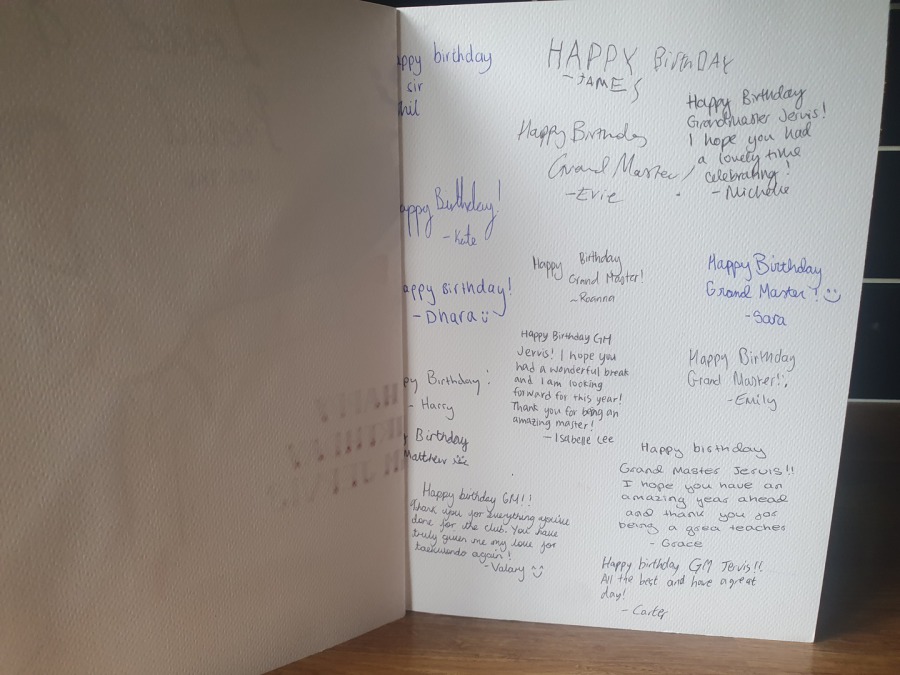 ppy birthday
sir
HAPPY BirthDAY
-JAMES
Happy Birthday
Grandmaster Jervis!
I hope you had
a lovely time
celebrating!
-Michelle
Happy Birthday
Grand Master!
-Evie
appy Birthday!
-Kate
Happy Birthday
Grand Master!
-Roanna
Happy Birthday
Grand Master! :)
-Sara
appy Birthday!
-Dhara :)
Happy Birthday GM
Jervis! I hope you
had a wonderful break
and I am looking
forward for this year!
Thank you for being an
amazing master!
-Isabelle Lee
Happy Birthday
Grand Master!
-Emily
py Birthday!
- Harry
Birthday
Matthew
Happy birthday
Grand Master Jervis!!
I hope you have an
amazing year ahead
and thank you for
being a grea teacher
- Grace
Happy birthday GM!!
Thank you for everything you've
done for the club. You have
truly given me my love for
taekwondo again!
-Valary :)
Happy birthday GM Jervis!!
All the best and have a great
day!
-Carter